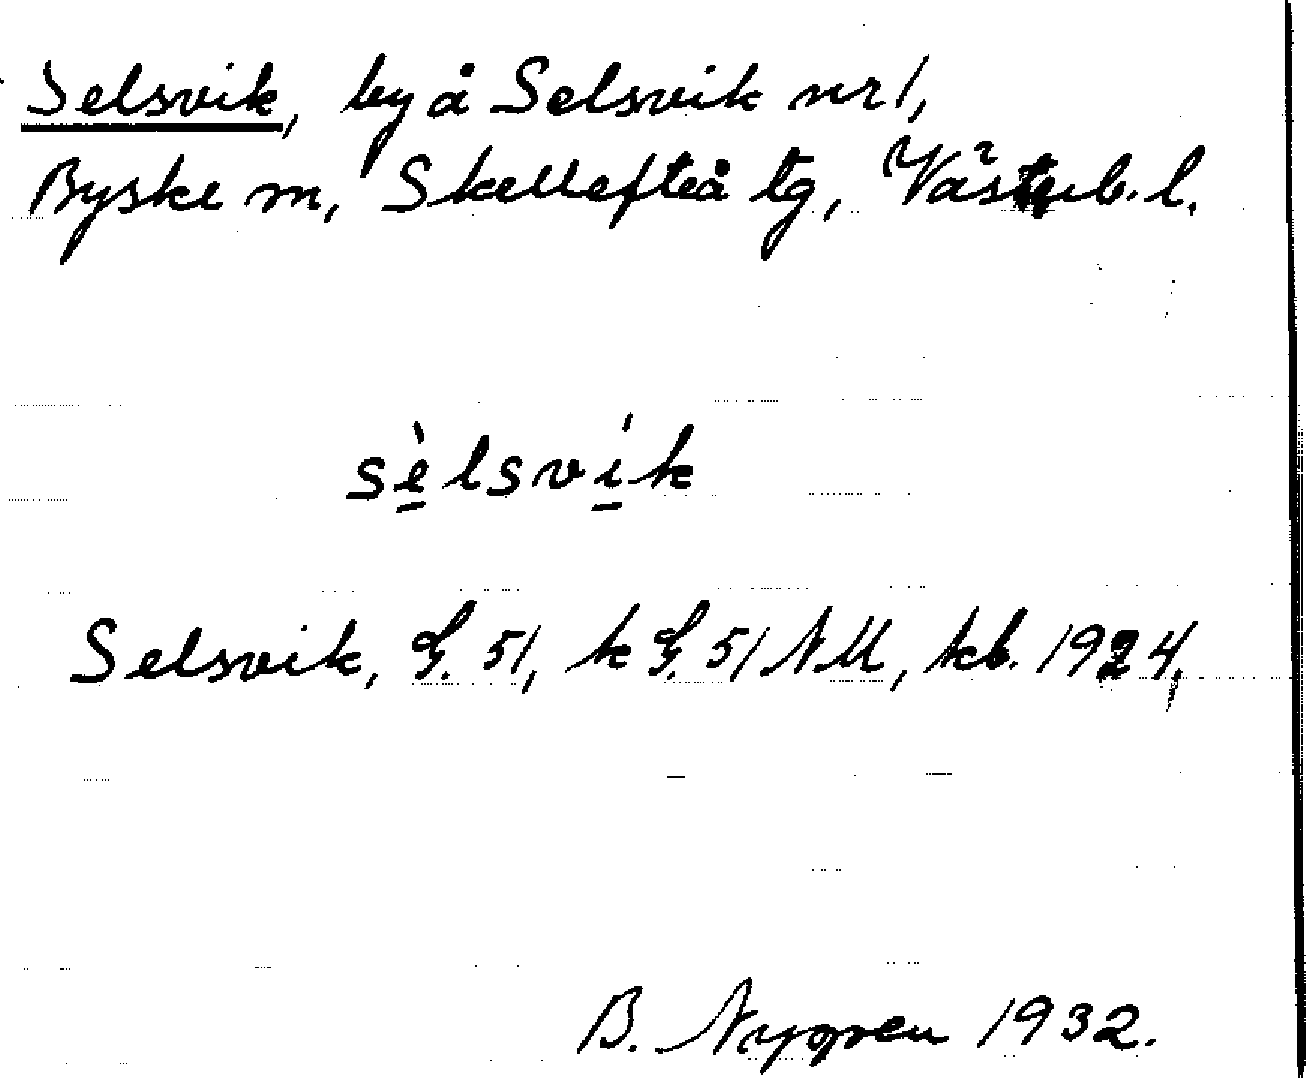 Selsvik, by å Selsvik nr 1,
Byske sn, Skellefteå tg, Västerb. l.
sèlsvík
Selsvik, G. 51, k G. 51 NM, kb. 1924.
B. Nygren 1932.